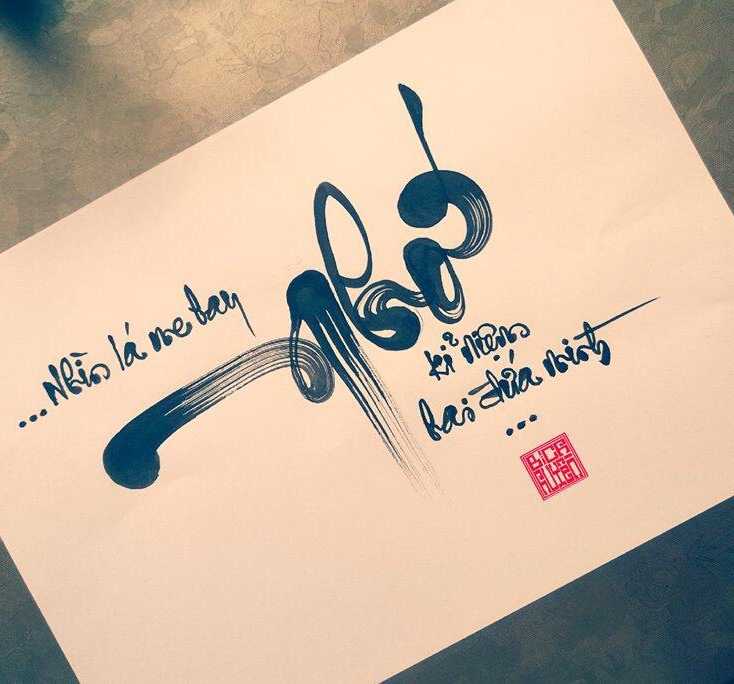 ...Nhìn lá me bay
Nhớ
kỉ niệm
hai đứa mình
...
BÍCH
HUYỀN